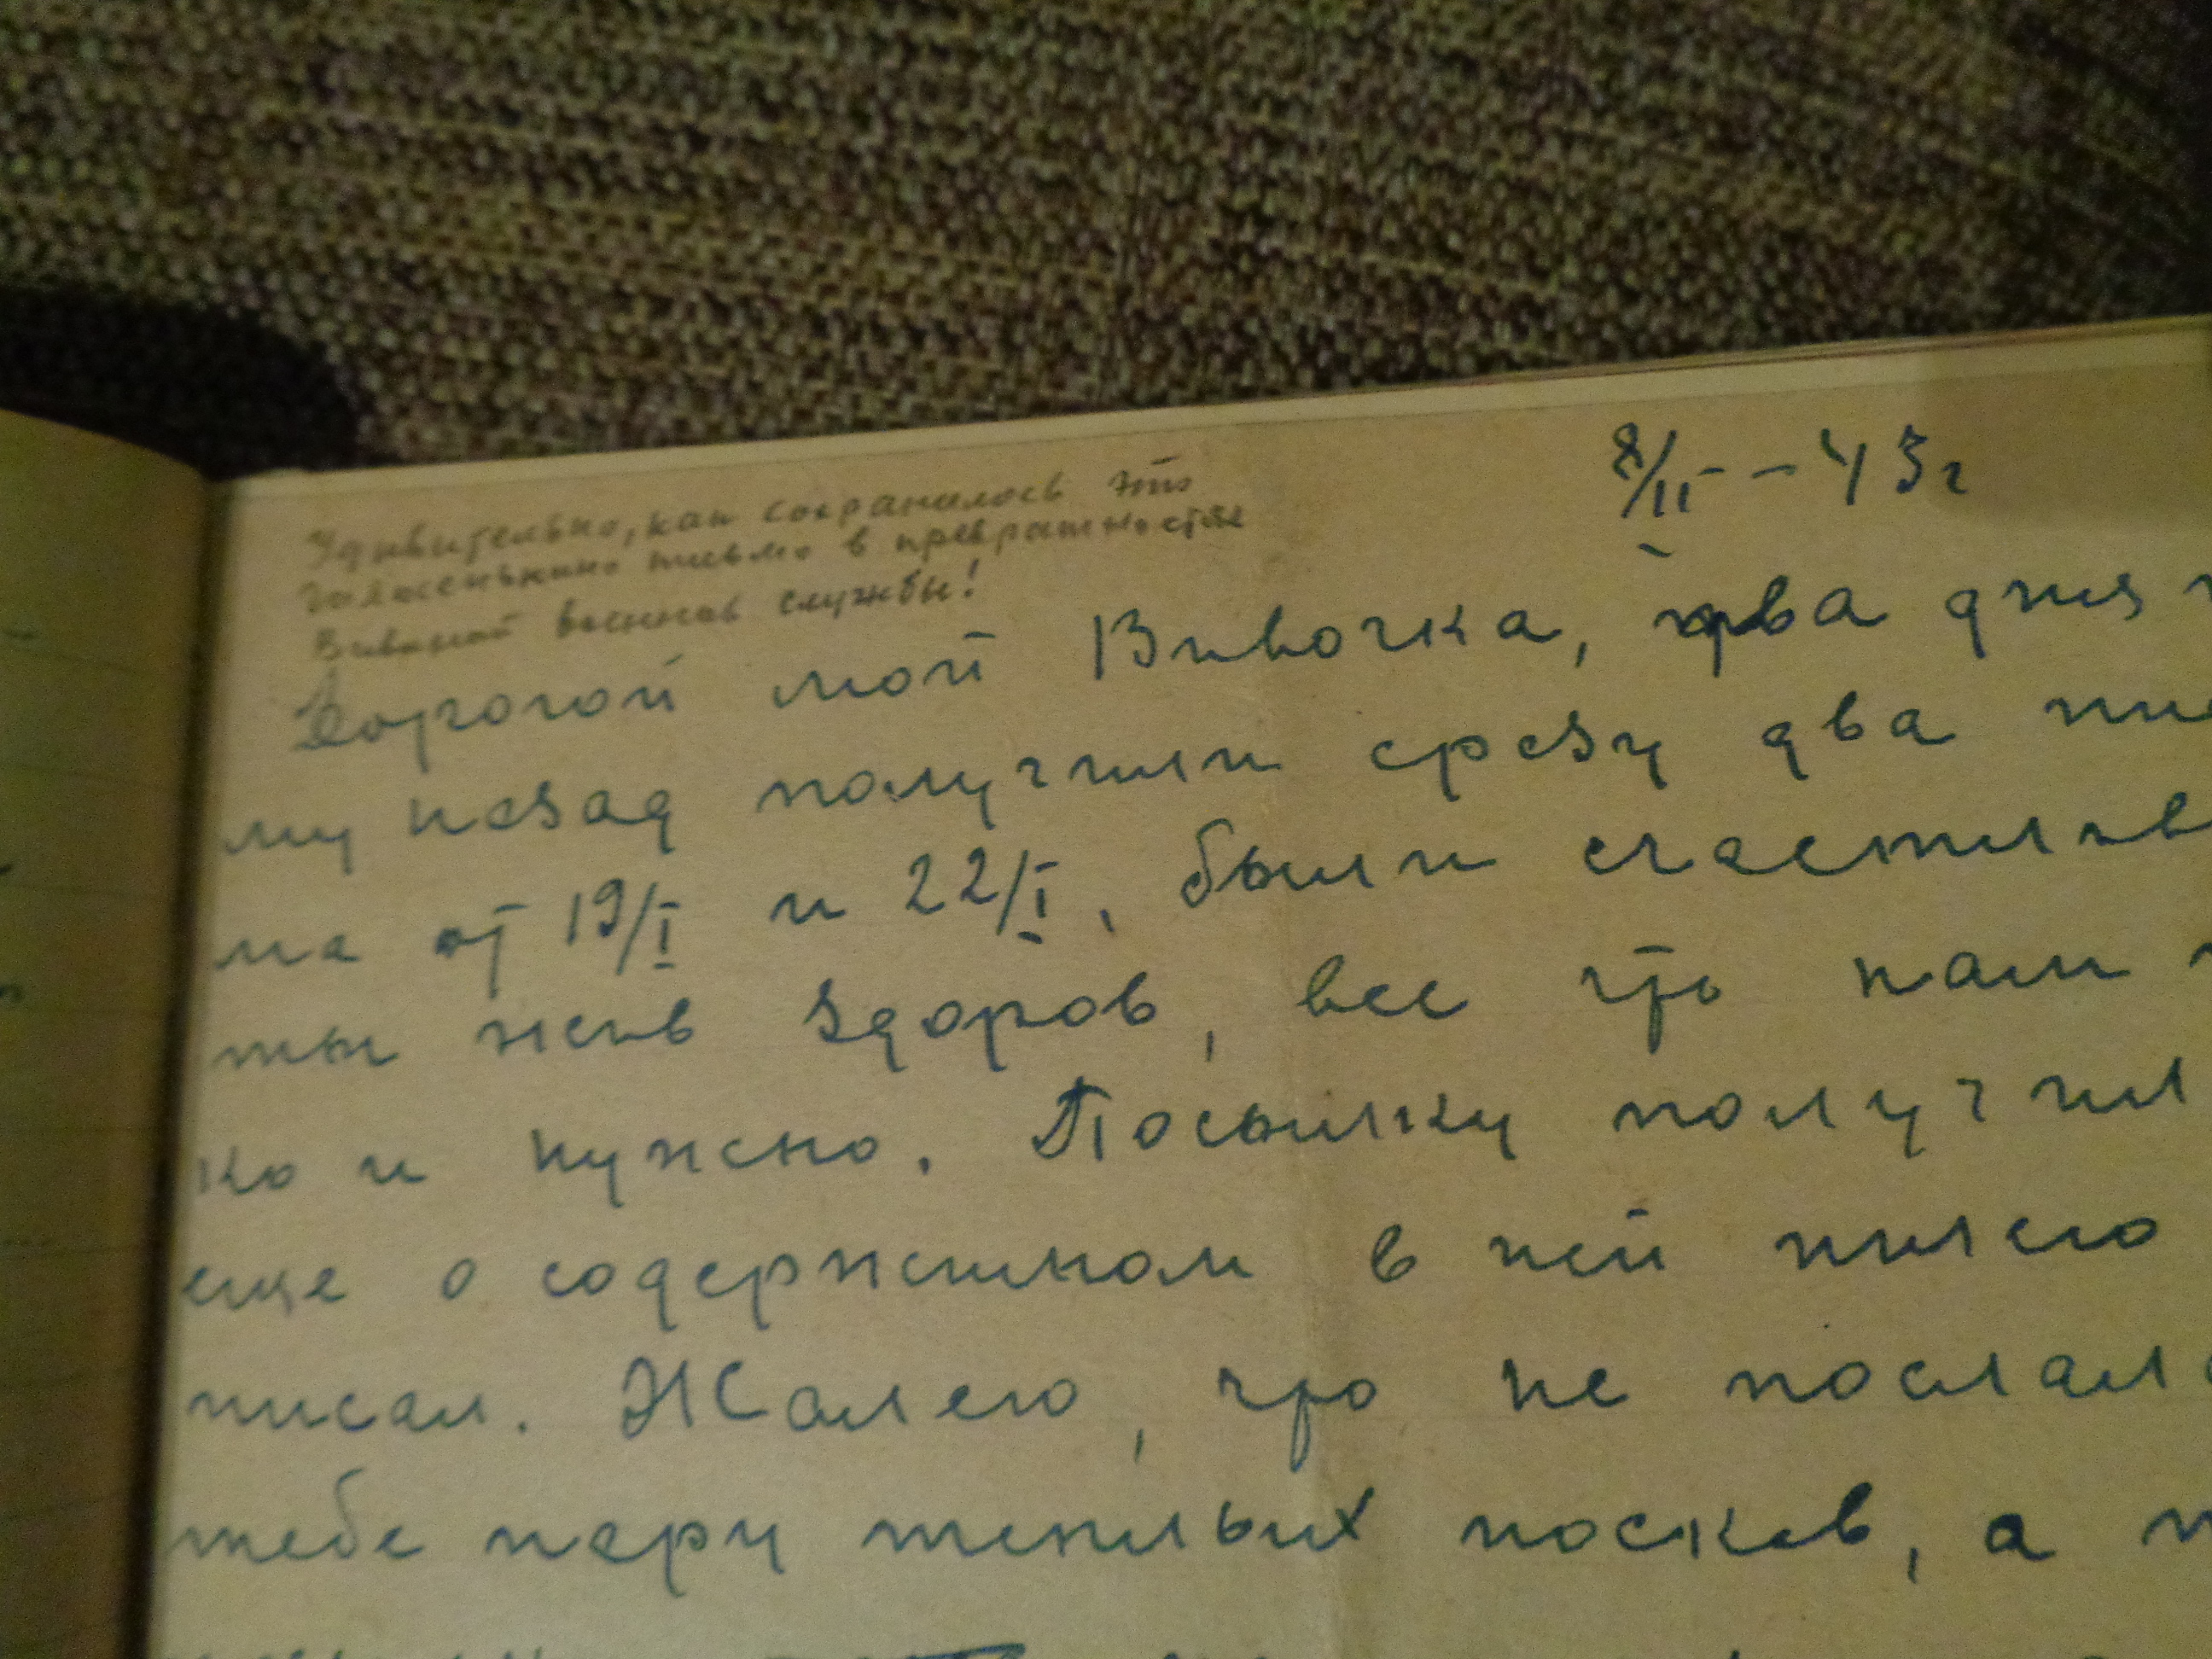 8/II – 43 г
Удивительно, как сохранилось это
письмо в превратностях
военной службы!
Дорогой мой Вивочка, два дня
му назад получили сразу два пис
ма от 19/I и 22/I, были счастлив
ты жив здоров, все что нам
ко и нужно. Посылку получил
еще о содержимом в ней ничего
писал. Жалею, что не послал
тебе пару теплых носков, а